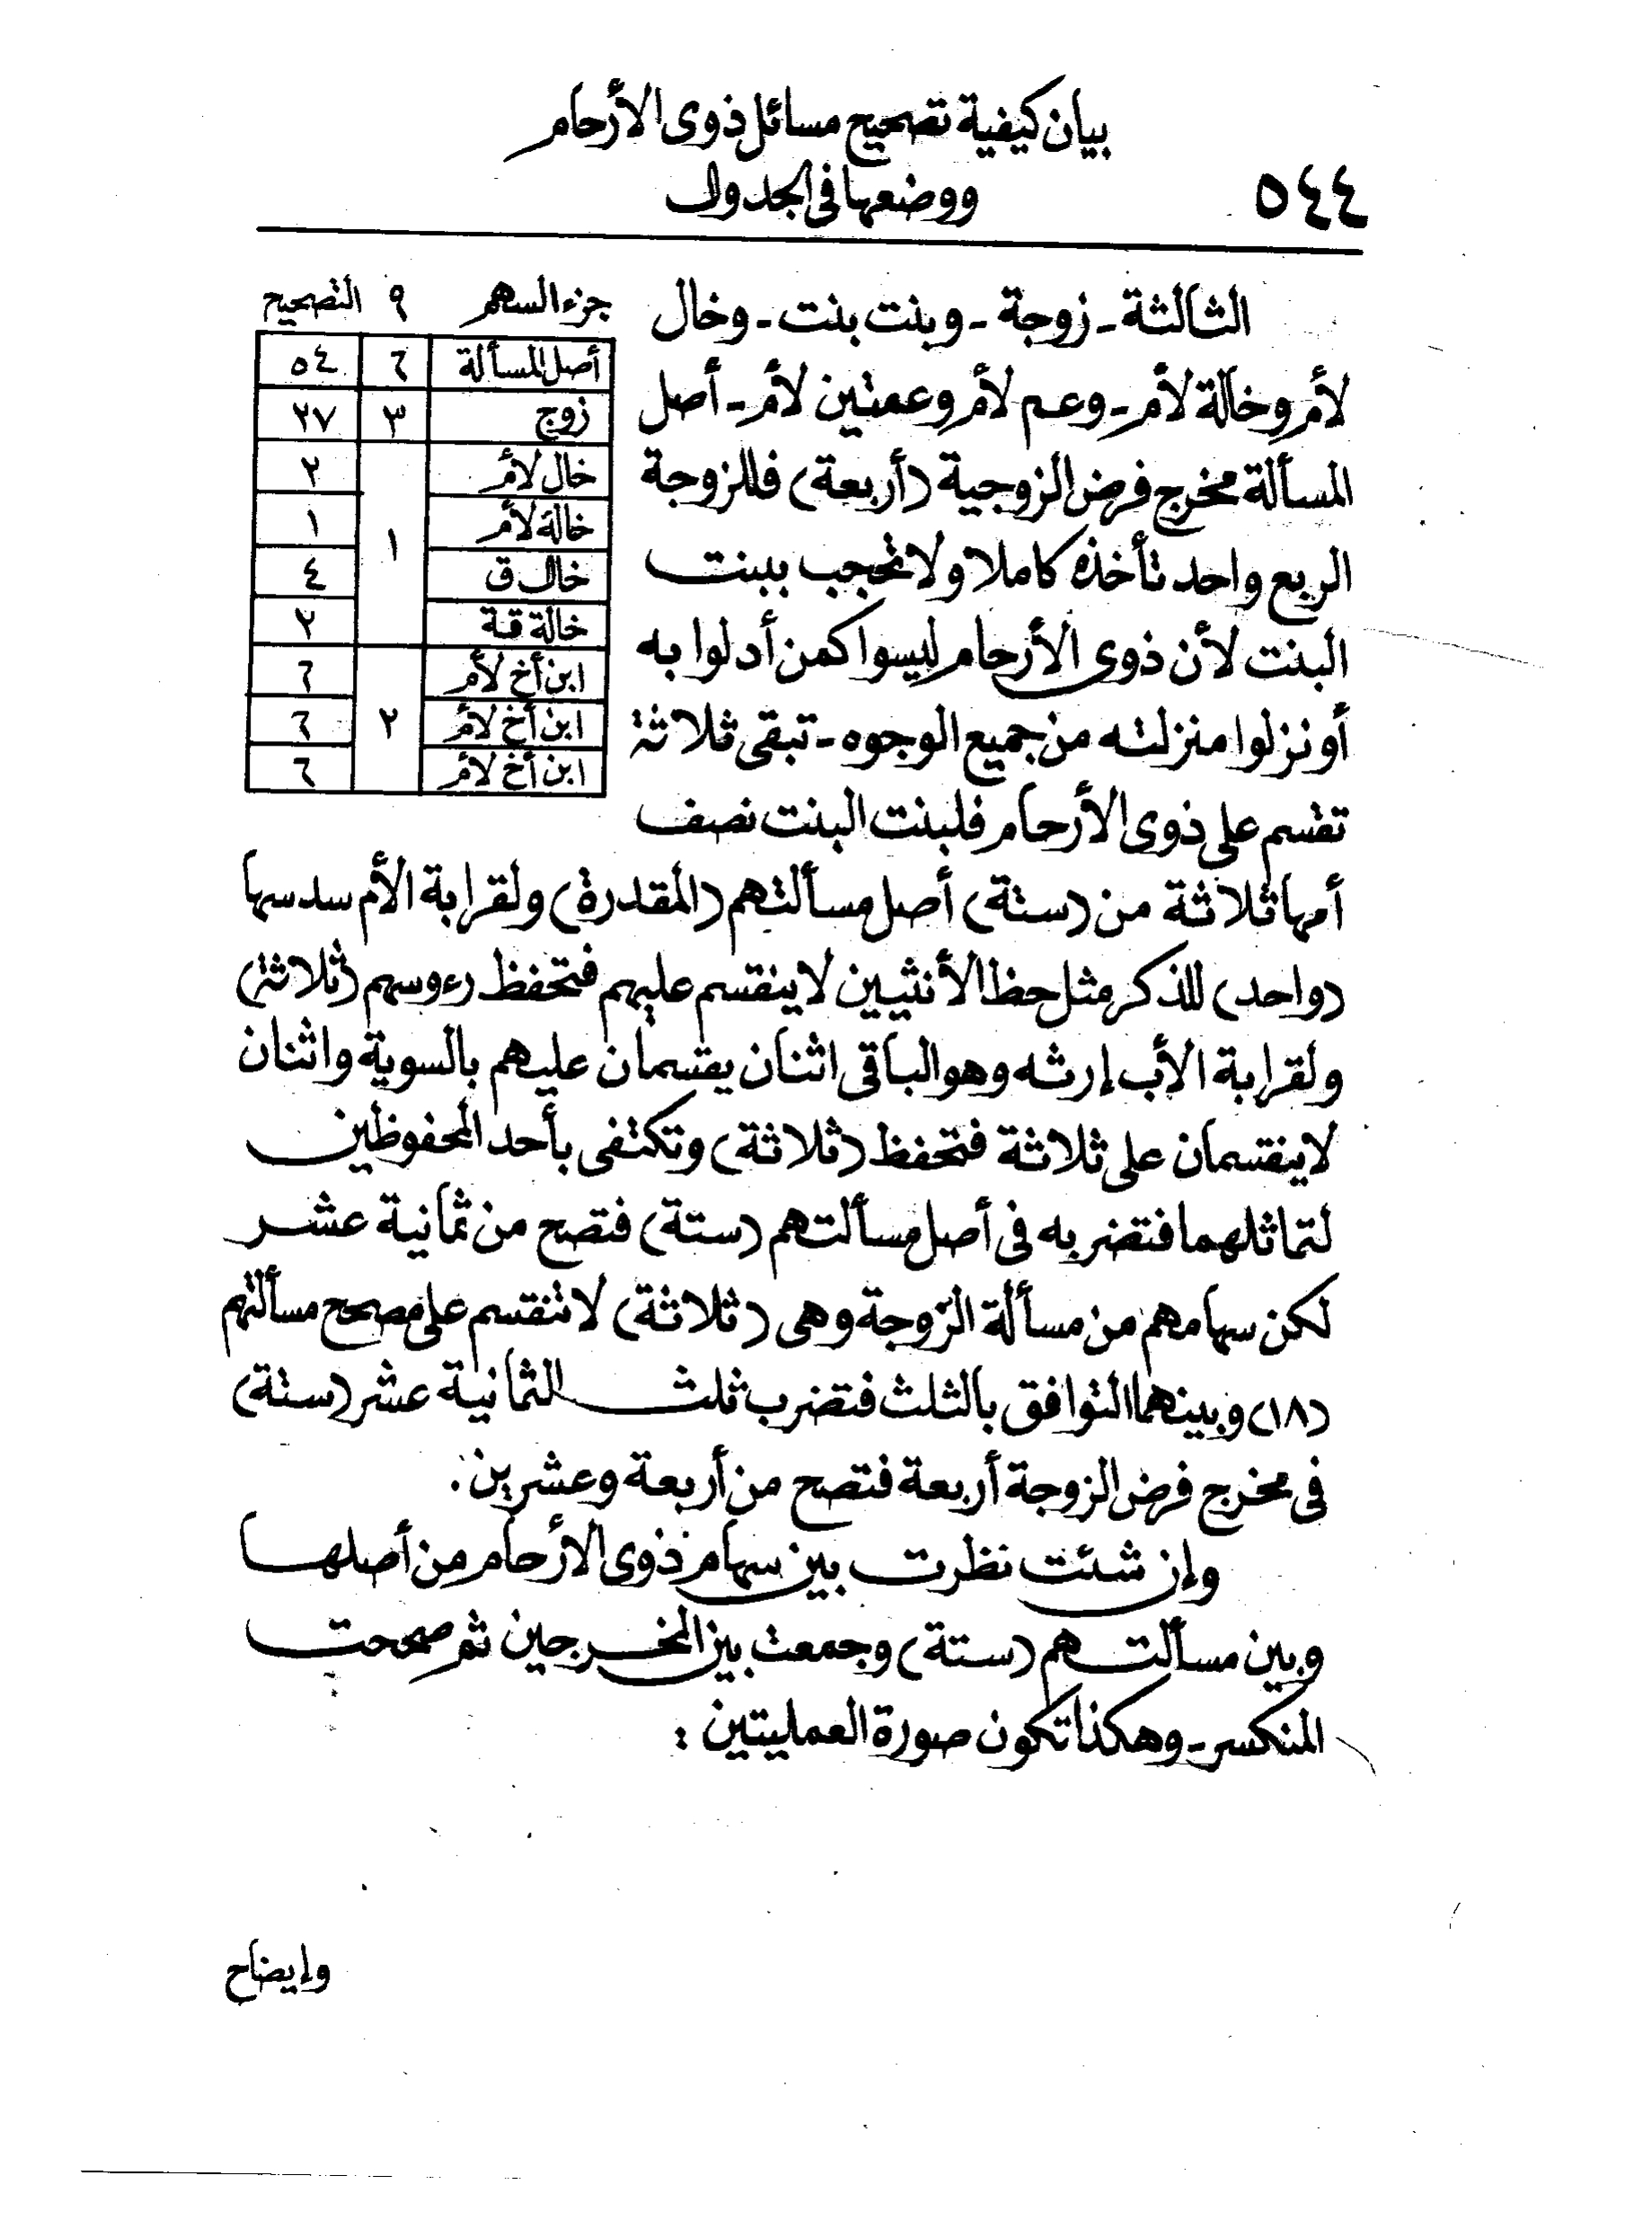 بيان كيفية تصحيح مسائل ذوى الأرحام
ووضعها فى الجدول
٥٤٤
جزء السهم ٩ التصحيح
أصل المسألة ٦ ٥٤
زوج ٣ ٢٧
خال لأم ٢
خالة لأم ١
١
خال ق ٤
خالة قة ٢
ابن أخ لأم ٦
ابن أخ لأم ٢ ٦
ابن أخ لأم ٦
الثالثة ـ زوجة ـ وبنت بنت ـ وخال
لأم وخالة لأم ـ وعم لأم وعمتين لأم ـ أصل
المسألة مخرج فرض الزوجية (أربعة) فللزوجة
الربع واحد تأخذه كاملا ولا تحجب ببنت
البنت لأن ذوى الأرحام ليسوا كمن أدلوا به
أو نزلوا منزلته من جميع الوجوه ـ تبقى ثلاثة
تقسم على ذوى الأرحام فلبنت البنت نصف
أمها ثلاثة من (ستة) أصل مسألتهم (المقدرة) ولقرابة الأم سدسها
(واحد) للذكر مثل حظ الأنثيين لا ينقسم عليهم فتحفظ رءوسهم (ثلاثة)
ولقرابة الأب إرثه وهو الباقى اثنان يقسمان عليهم بالسوية واثنان
لا ينقسمان على ثلاثة فتحفظ (ثلاثة) وتكتفى بأحد المحفوظين
لتماثلهما فتضربه فى أصل مسألتهم (ستة) فتصح من ثمانية عشر
لكن سهامهم من مسألة الزوجة وهى (ثلاثة) لا تنقسم على مصحح مسألتهم
(١٨) وبينهما التوافق بالثلث فتضرب ثلث الثمانية عشر (ستة)
فى مخرج فرض الزوجة أربعة فتصح من أربعة وعشرين .
وإن شئت نظرت بين سهام ذوى الأرحام من أصلها
وبين مسألتهم (ستة) وجمعت بين المخرجين ثم صححت
المنكسر ـ وهكذا تكون صورة العمليتين :
وإيضاح